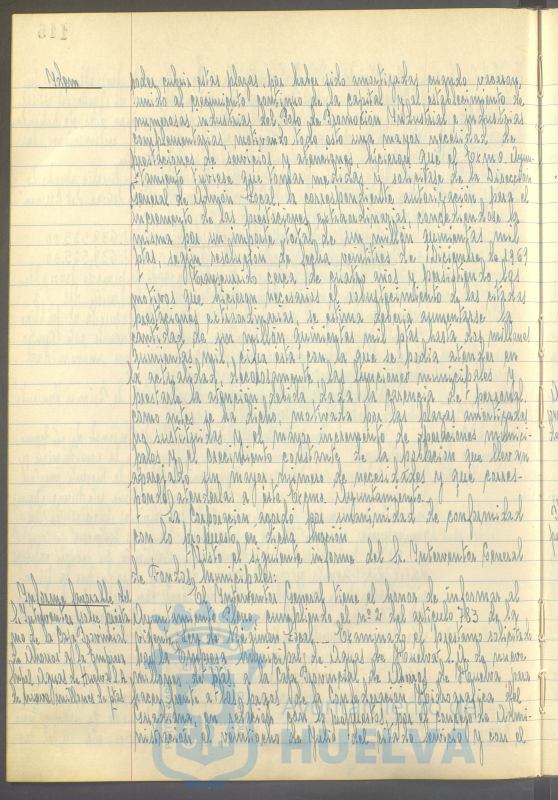 Idem
poder cubrir estas plazas, por haber sido amortizadas cuando vacaron,
unido al crecimiento continuo de la capital y al establecimiento de
numerosas industrias del Polo de Promoción Industrial e industrias
complementarias, motivando todo esto una mayor necesidad de
prestaciones de servicios y atenciones, hicieron que el Excmo. Ayun-
tamiento tuviese que tomar medidas y solicitase de la Dirección
General de Admón. Local, la correspondiente autorización para el
incremento de las prestaciones extraordinarias, concediéndole la
misma por un importe total de un millón quinientas mil
ptas, según resolución de fecha veintitrés de Diciembre de 1969
Transcurrido cerca de cuatro años y persistiendo los
motivos que hicieron necesarios el restablecimiento de las citadas
prestaciones extraordinarias, se estima debería aumentarse la
cantidad de un millón quinientas mil ptas, hasta dos millones
quinientas mil, cifra esta, con la que se podía atender en
la actualidad, decorosamente, las funciones municipales y
prestarle la atención debida, dada la carencia de personal
como antes se ha dicho, motivada por las plazas amortizadas
no sustituidas y el mayor incremento de operaciones munici-
pales y el crecimiento constante de la población que llevan
aparejado un mayor número de necesidades y que corres-
ponde atenderlas a este Excmo Ayuntamiento.
La Corporación acordó por unanimidad de conformidad
con lo propuesto en dicha Moción.
Visto el siguiente informe del Sr. Interventor General
de Fondos Municipales:
Informe favorable de
l. Interventor sobre présta
mo de la Caja Provincial
de Ahorros a la Empresa
Mpal. Aguas de Huelva S.A.
de nueve millones de ptas
"El Interventor General tiene el honor de informar al
Ayuntamiento Pleno cumpliendo el nº 2 del artículo 783 de la
vigente Ley de Régimen Local.- Examinado el préstamo solicitado
por la Empresa Municipal de Aguas de Huelva S.A. de nueve
millones de ptas a la Caja Provincial de Ahorros de Huelva, para
hacer frente a los pagos de la Confederación Hidrográfica del
Guadiana, en relación con lo propuesto, por el Consejo de Admi-
nistración, el veintiocho de Julio del citado ejercicio y con el
AYUNTAMIENTO DE
HUELVA